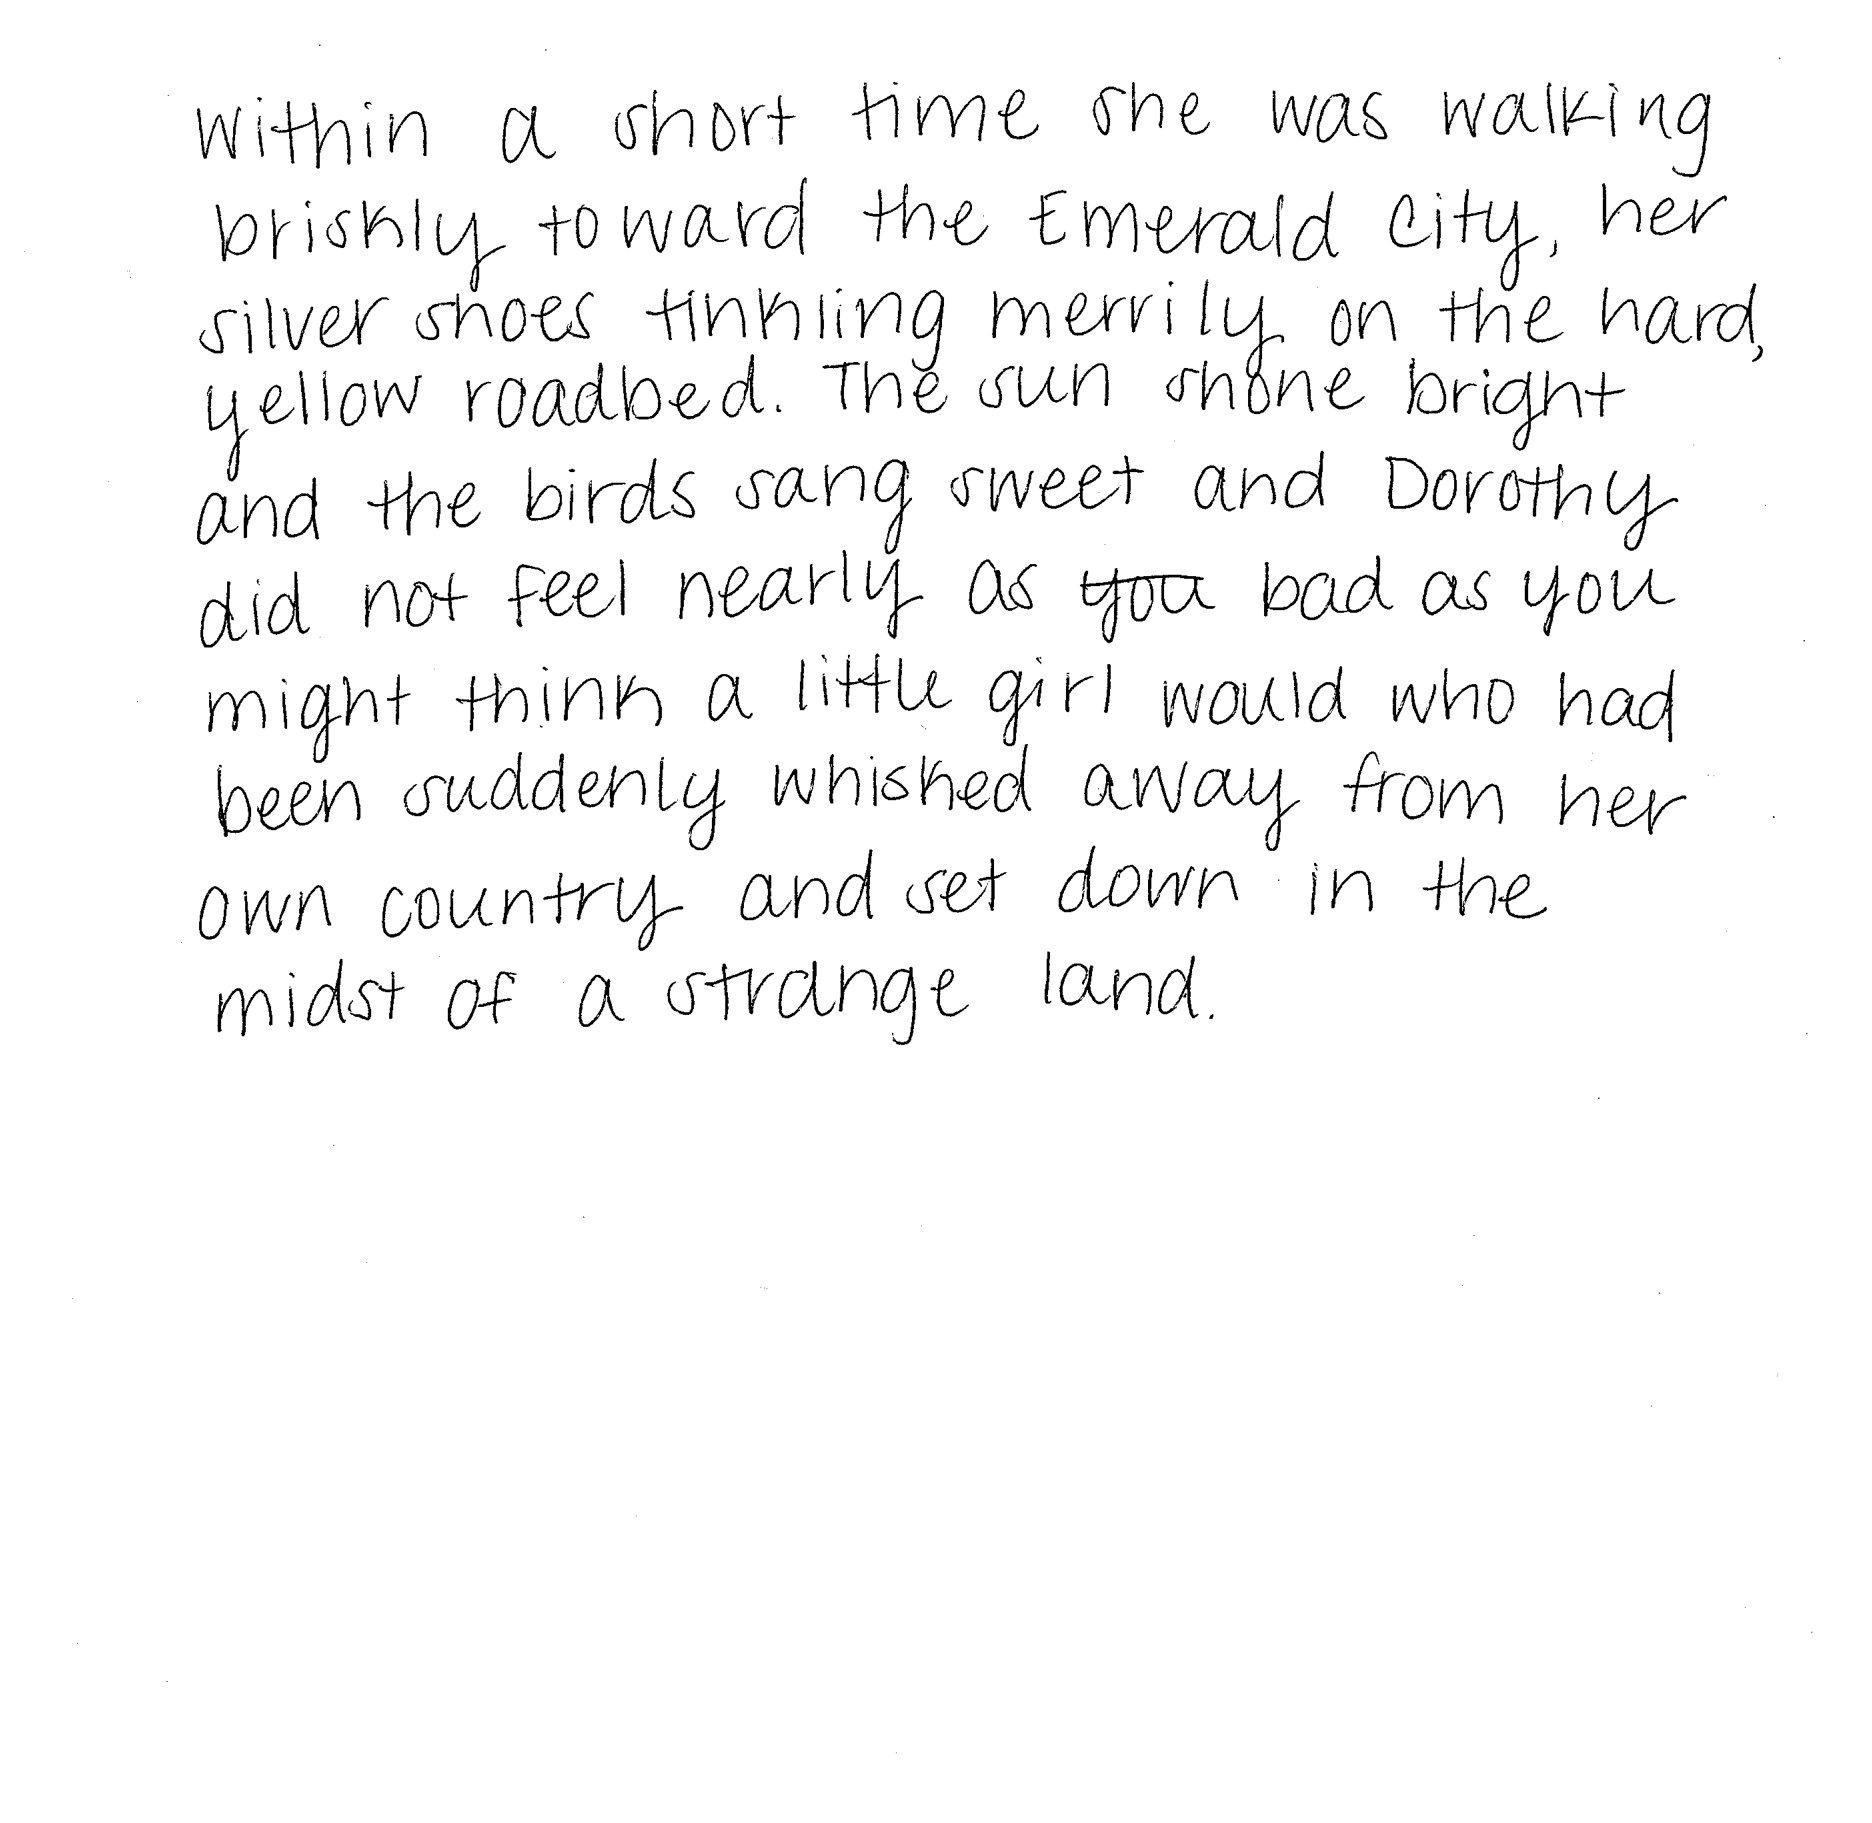 Within a short time she was walking
briskly toward the Emerald City, her
silver shoes tinkling merrily on the hard,
yellow roadbed. The sun shone bright
and the birds sang sweet and Dorothy
did not feel nearly as ~~you~~ bad as you
might think a little girl would who had
been suddenly whisked away from her
own country and set down in the
midst of a strange land.